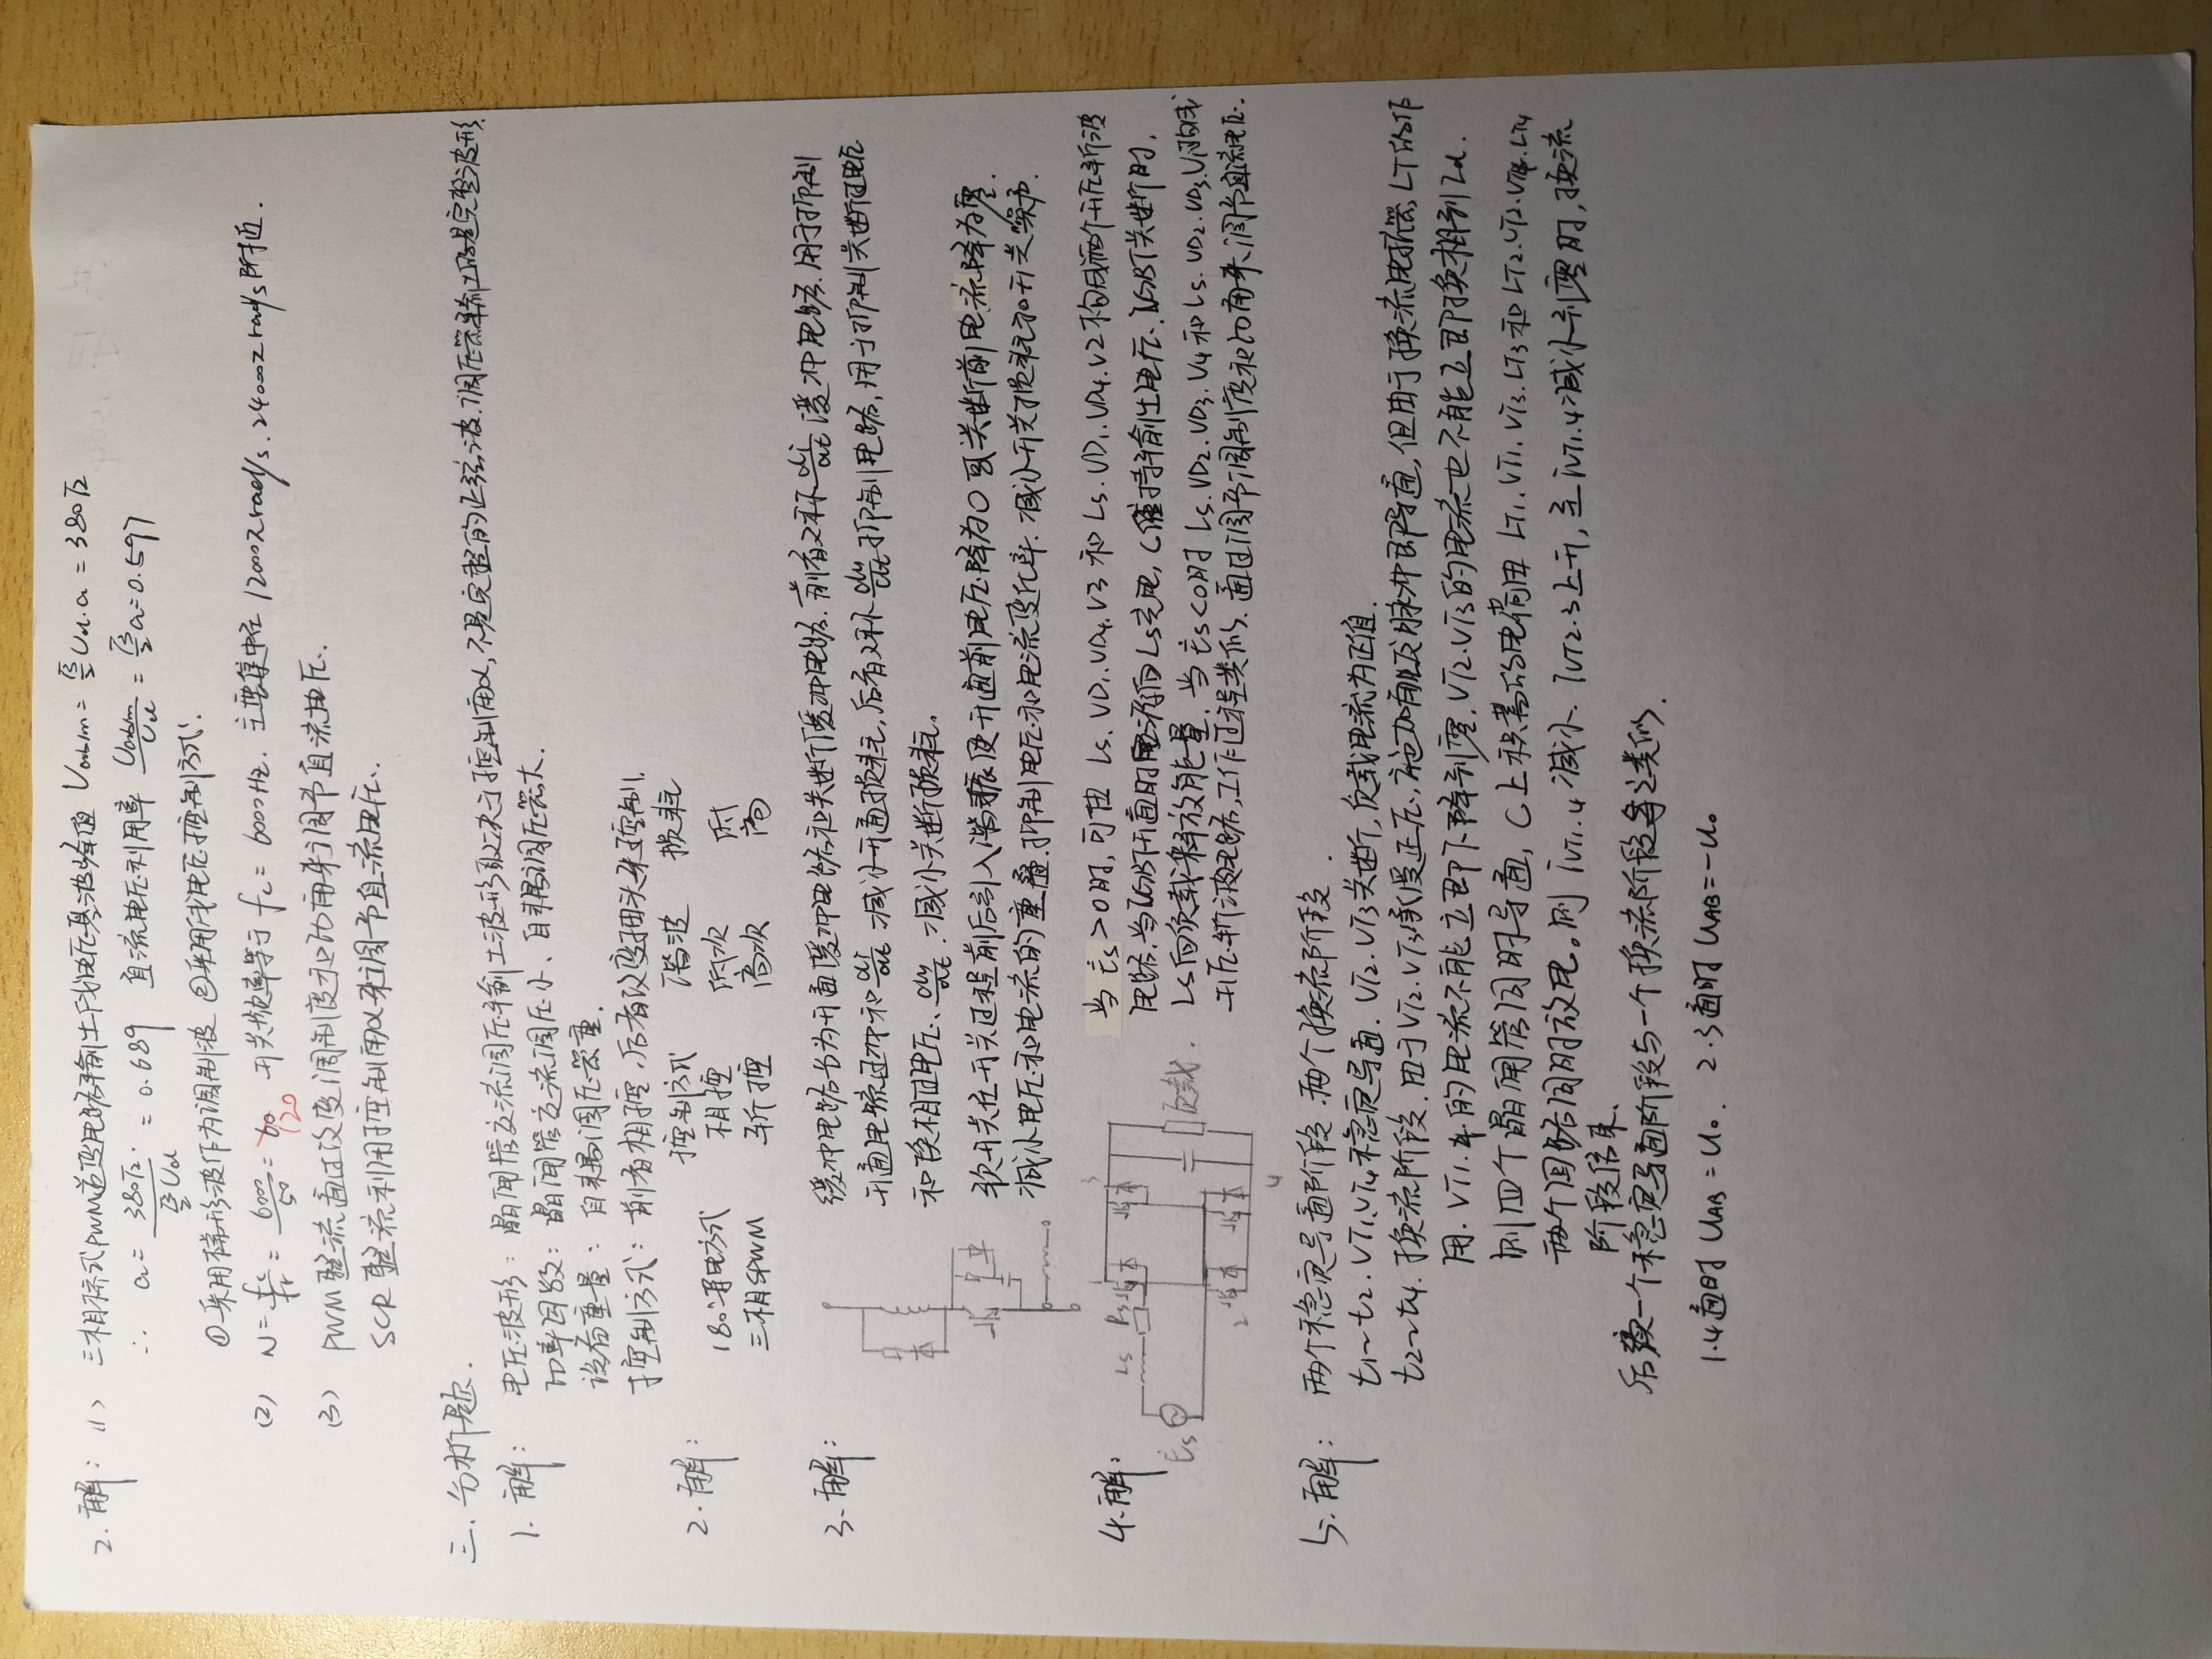 2. 解: (1) 三相桥式PWM逆变电路输出线电压基波峰值 Uab1m = √3/2 Ud·a = 380√2
∴ a = 380√2 / (√3/2 Ud) = 0.689 直流电压利用率 Uab1m/Ud = √3/2 a = 0.597
①采用梯形波作为调制波 ②采用线电压控制方式.
(2) N = fc/fr = 6000/50 = 60 120 开关频率等于 fc = 6000Hz. 主要集中在 12000π rad/s. 24000π rad/s 附近.
(3) PWM整流通过改变调制度和功角来调节直流电压.
SCR整流利用控制角α来调节直流电压.
三. 分析题.
1. 解: 电压波形: 晶闸管交流调压输出波形取决于控制角α, 不是完整的正弦波. 调压器输出的是完整波形.
功率因数: 晶闸管交流调压小、自耦调压器大.
设备重量: 自耦调压器重.
控制方式: 前者相控, 后者改变抽头来控制.
2. 解: 控制方式 谐波 损耗
180°导电方式 相控 低次 低
三相SPWM 斩控 高次 高
3. 解: 缓冲电路分为开通缓冲电路和关断缓冲电路. 前者又称 di/dt 缓冲电路. 用于抑制
开通电流过冲和 di/dt 减小开通损耗, 后者又称 du/dt 抑制电路, 用于抑制关断过电压
和换相过电压、du/dt. 减小关断损耗.
软开关在开关过程前后引入谐振使开通前电压降为0或关断前电流降为零.
减小电压和电流的重叠. 抑制电压和电流变化率. 减小开关损耗和开关噪声.
4. 解: 当 Es>0时, 可由 Ls. VD1. VD4. V3 和 Ls. VD1. VD4. V2 构成两个升压斩波
电路. 当IGBT开通时电源向Ls充电, C维持输出电压. IGBT关断时,
Ls向负载释放能量. 当 Es<0时 Ls. VD2. VD3. V4 和 Ls. VD2. VD3. V1构成
升压斩波电路, 工作过程类似. 通过调节调制度和功角来调节直流电压.
Ls Rs 1 3
Es 负载
2
4
5. 解: 两个稳定导通阶段. 两个换流阶段.
t1~t2. VT1. VT4 稳定导通. VT2. VT3 关断, 负载电流为正值.
t2~t4. 换流阶段. 由于VT2. VT3承受正压, 施加触发脉冲即导通, 但由于换流电抗器LT的作
用. VT1.4. 的电流不能立即下降到零, VT2. VT3的电流也不能立即换相到Id.
则四个晶闸管同时导通, C上积蓄的电荷由 LT1. VT1. VT3. LT3 和 LT2. VT2. VT4. LT4
两个回路同时放电。则 iVT1.4 减小. iVT2.3上升, 至 iVT1.4减小到零时, 换流
阶段结束.
后续一个稳定导通阶段与一个换流阶段与之类似.
1.4通时 UAB = U0. 2.3通时 UAB = -U0